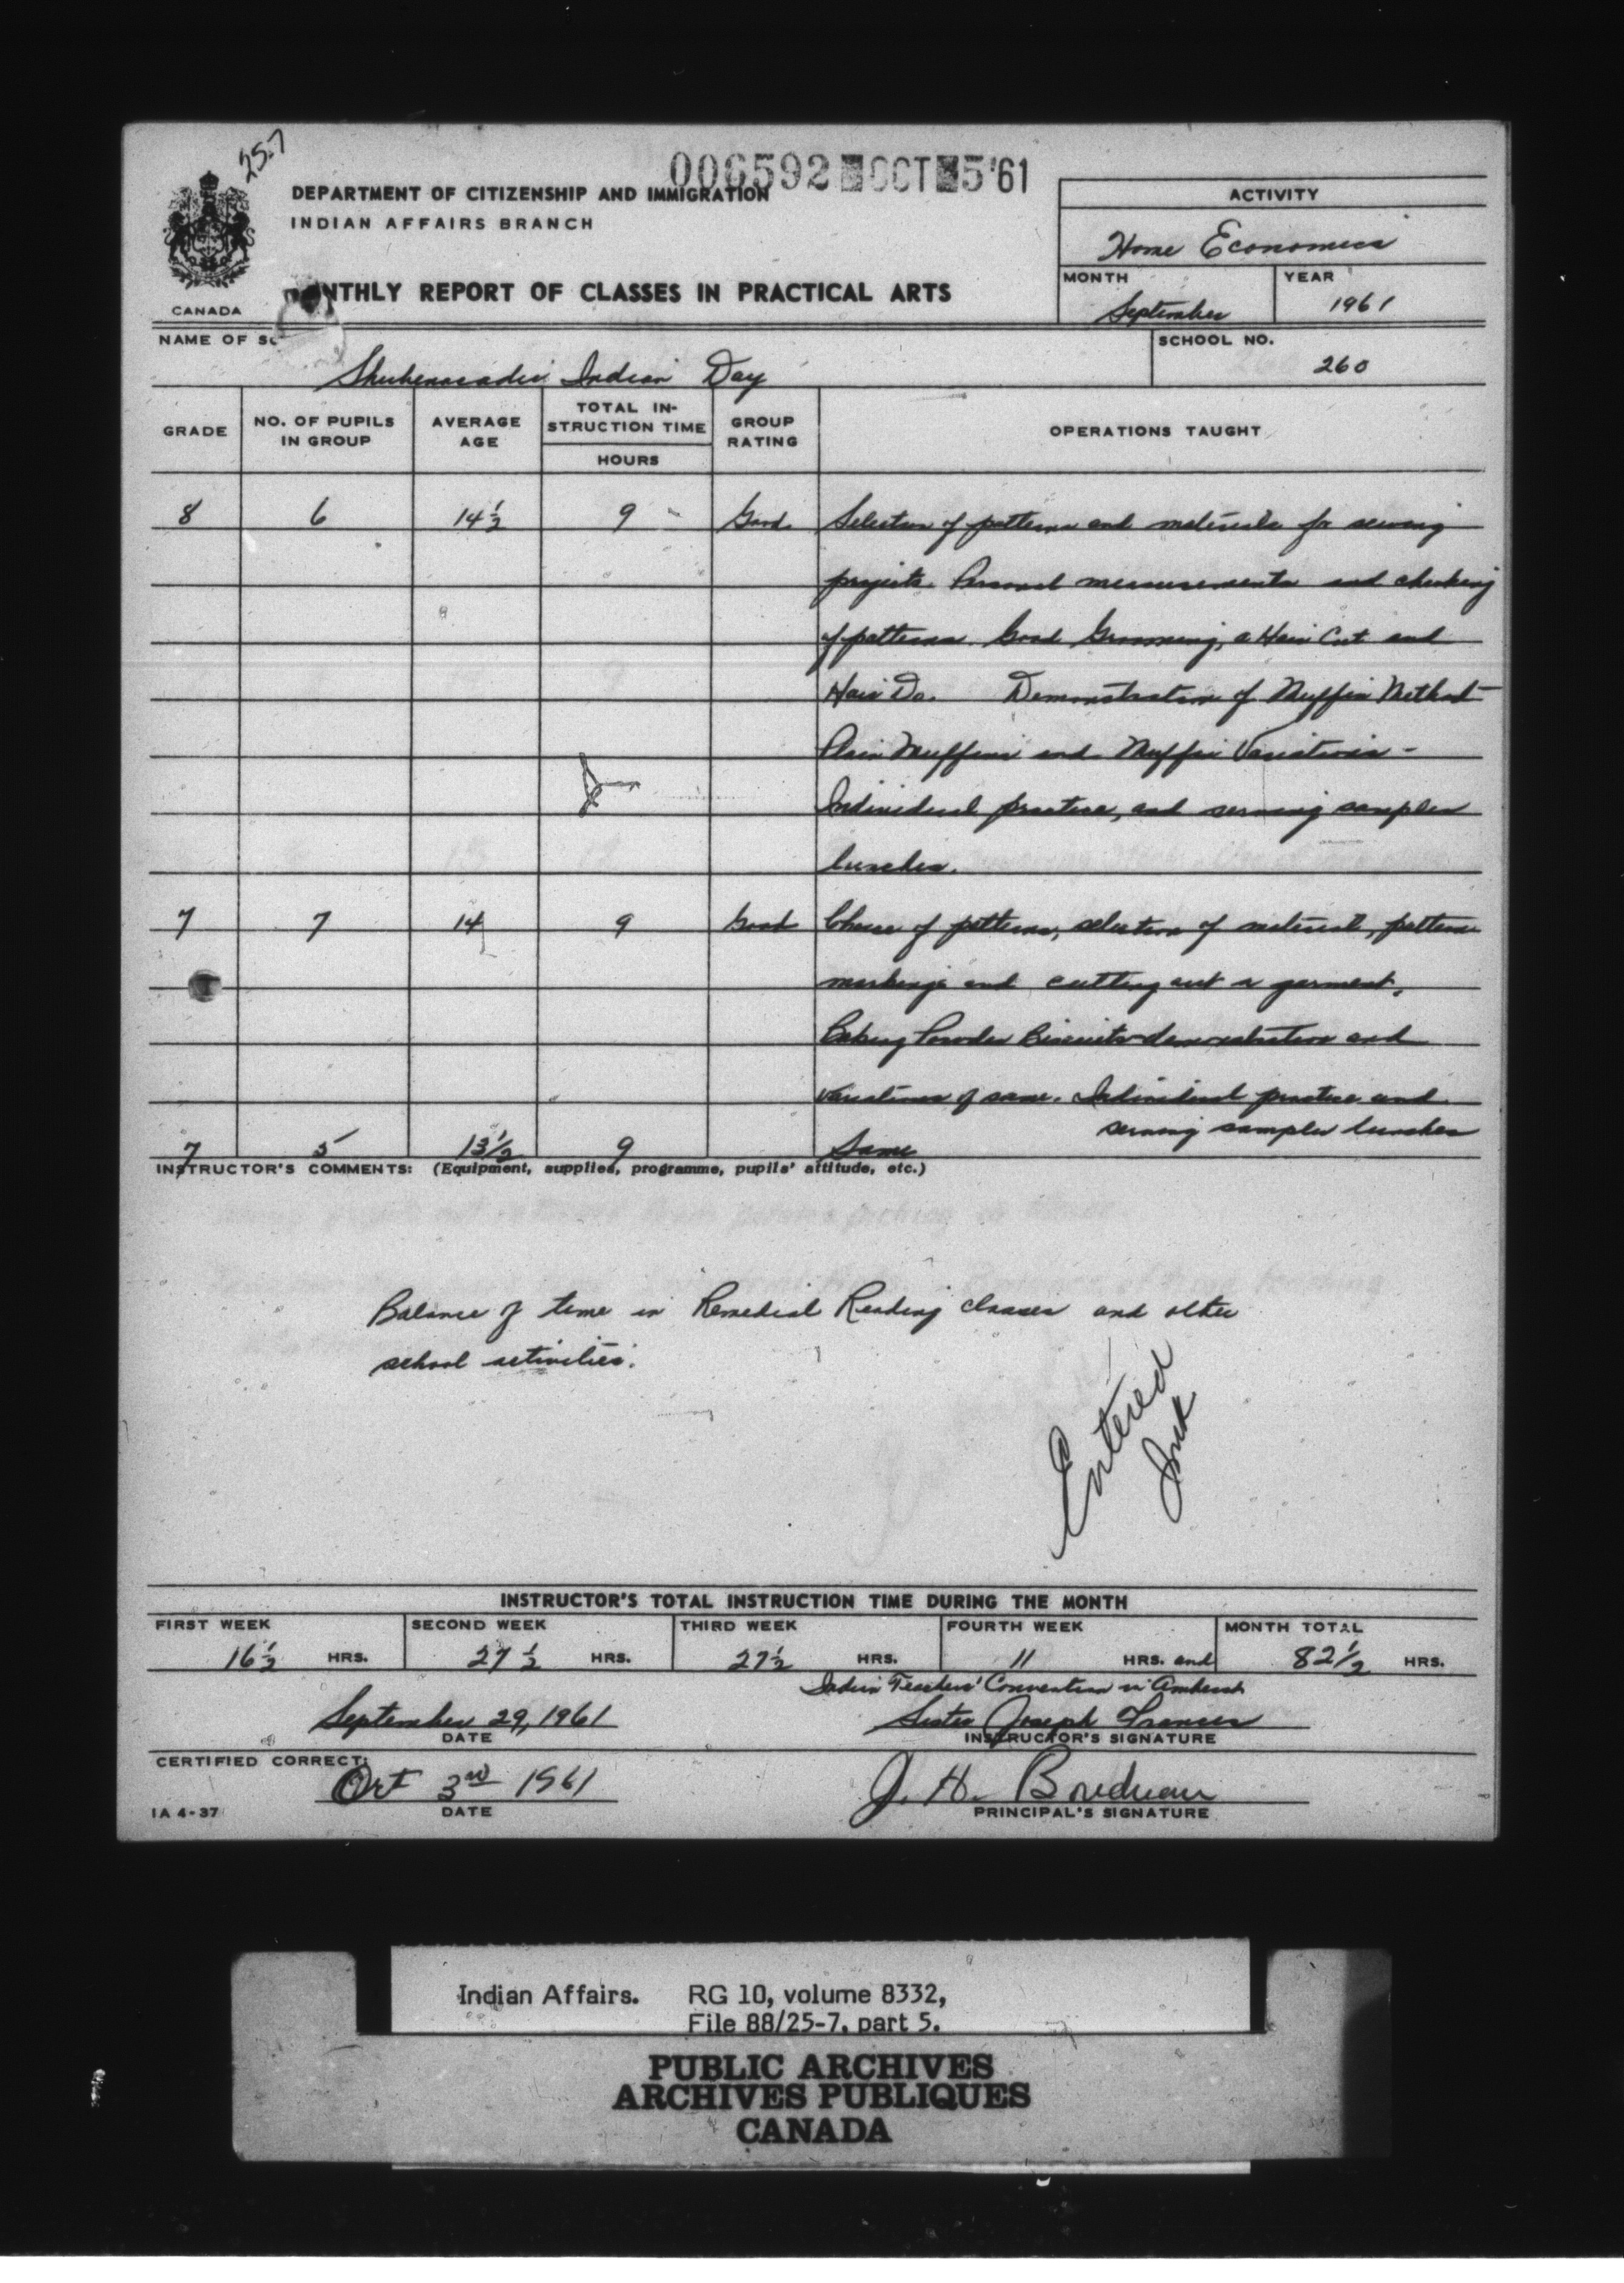 25-7
006592 OCT -5 '61
DEPARTMENT OF CITIZENSHIP AND IMMIGRATION
INDIAN AFFAIRS BRANCH
ACTIVITY
Home Economics
NTHLY REPORT OF CLASSES IN PRACTICAL ARTS
MONTH
YEAR
September
1961
CANADA
NAME OF SC
SCHOOL NO.
Shubenacadie Indian Day
260
GRADE
NO. OF PUPILS IN GROUP
AVERAGE AGE
TOTAL IN-STRUCTION TIME
HOURS
GROUP RATING
OPERATIONS TAUGHT
8 6 14 1/2 9 Good Selection of patterns and materials for sewing
projects. Personal measurements and checking
of patterns. Good Grooming, a Hair Cut and
Hair Do. Demonstration of Muffin Method -
Plain Muffins and Muffin Variations -
Individual practice, and serving samples
lunches.
7 7 14 9 Good Choice of patterns, selection of material, pattern
markings and cutting out a garment.
Baking Powder Biscuits-demonstration and
variations of same. Individual practice and
serving samples lunches
7 5 13 1/2 9 Same
INSTRUCTOR'S COMMENTS: (Equipment, supplies, programme, pupils' attitude, etc.)
Balance of time in Remedial Reading classes and other
school activities.
Entered
INSTRUCTOR'S TOTAL INSTRUCTION TIME DURING THE MONTH
FIRST WEEK
SECOND WEEK
THIRD WEEK
FOURTH WEEK
MONTH TOTAL
16 1/2 HRS. 27 1/2 HRS. 27 1/2 HRS. 11 HRS. and 82 1/2 HRS.
Indian Teachers' Convention in Amherst
September 29, 1961
Sister Joseph Frances
DATE
INSTRUCTOR'S SIGNATURE
CERTIFIED CORRECT:
Oct 3rd 1961
J. H. Boudreau
IA 4-37
DATE
PRINCIPAL'S SIGNATURE
Indian Affairs. RG 10, volume 8332,
File 88/25-7, part 5.
PUBLIC ARCHIVES
ARCHIVES PUBLIQUES
CANADA